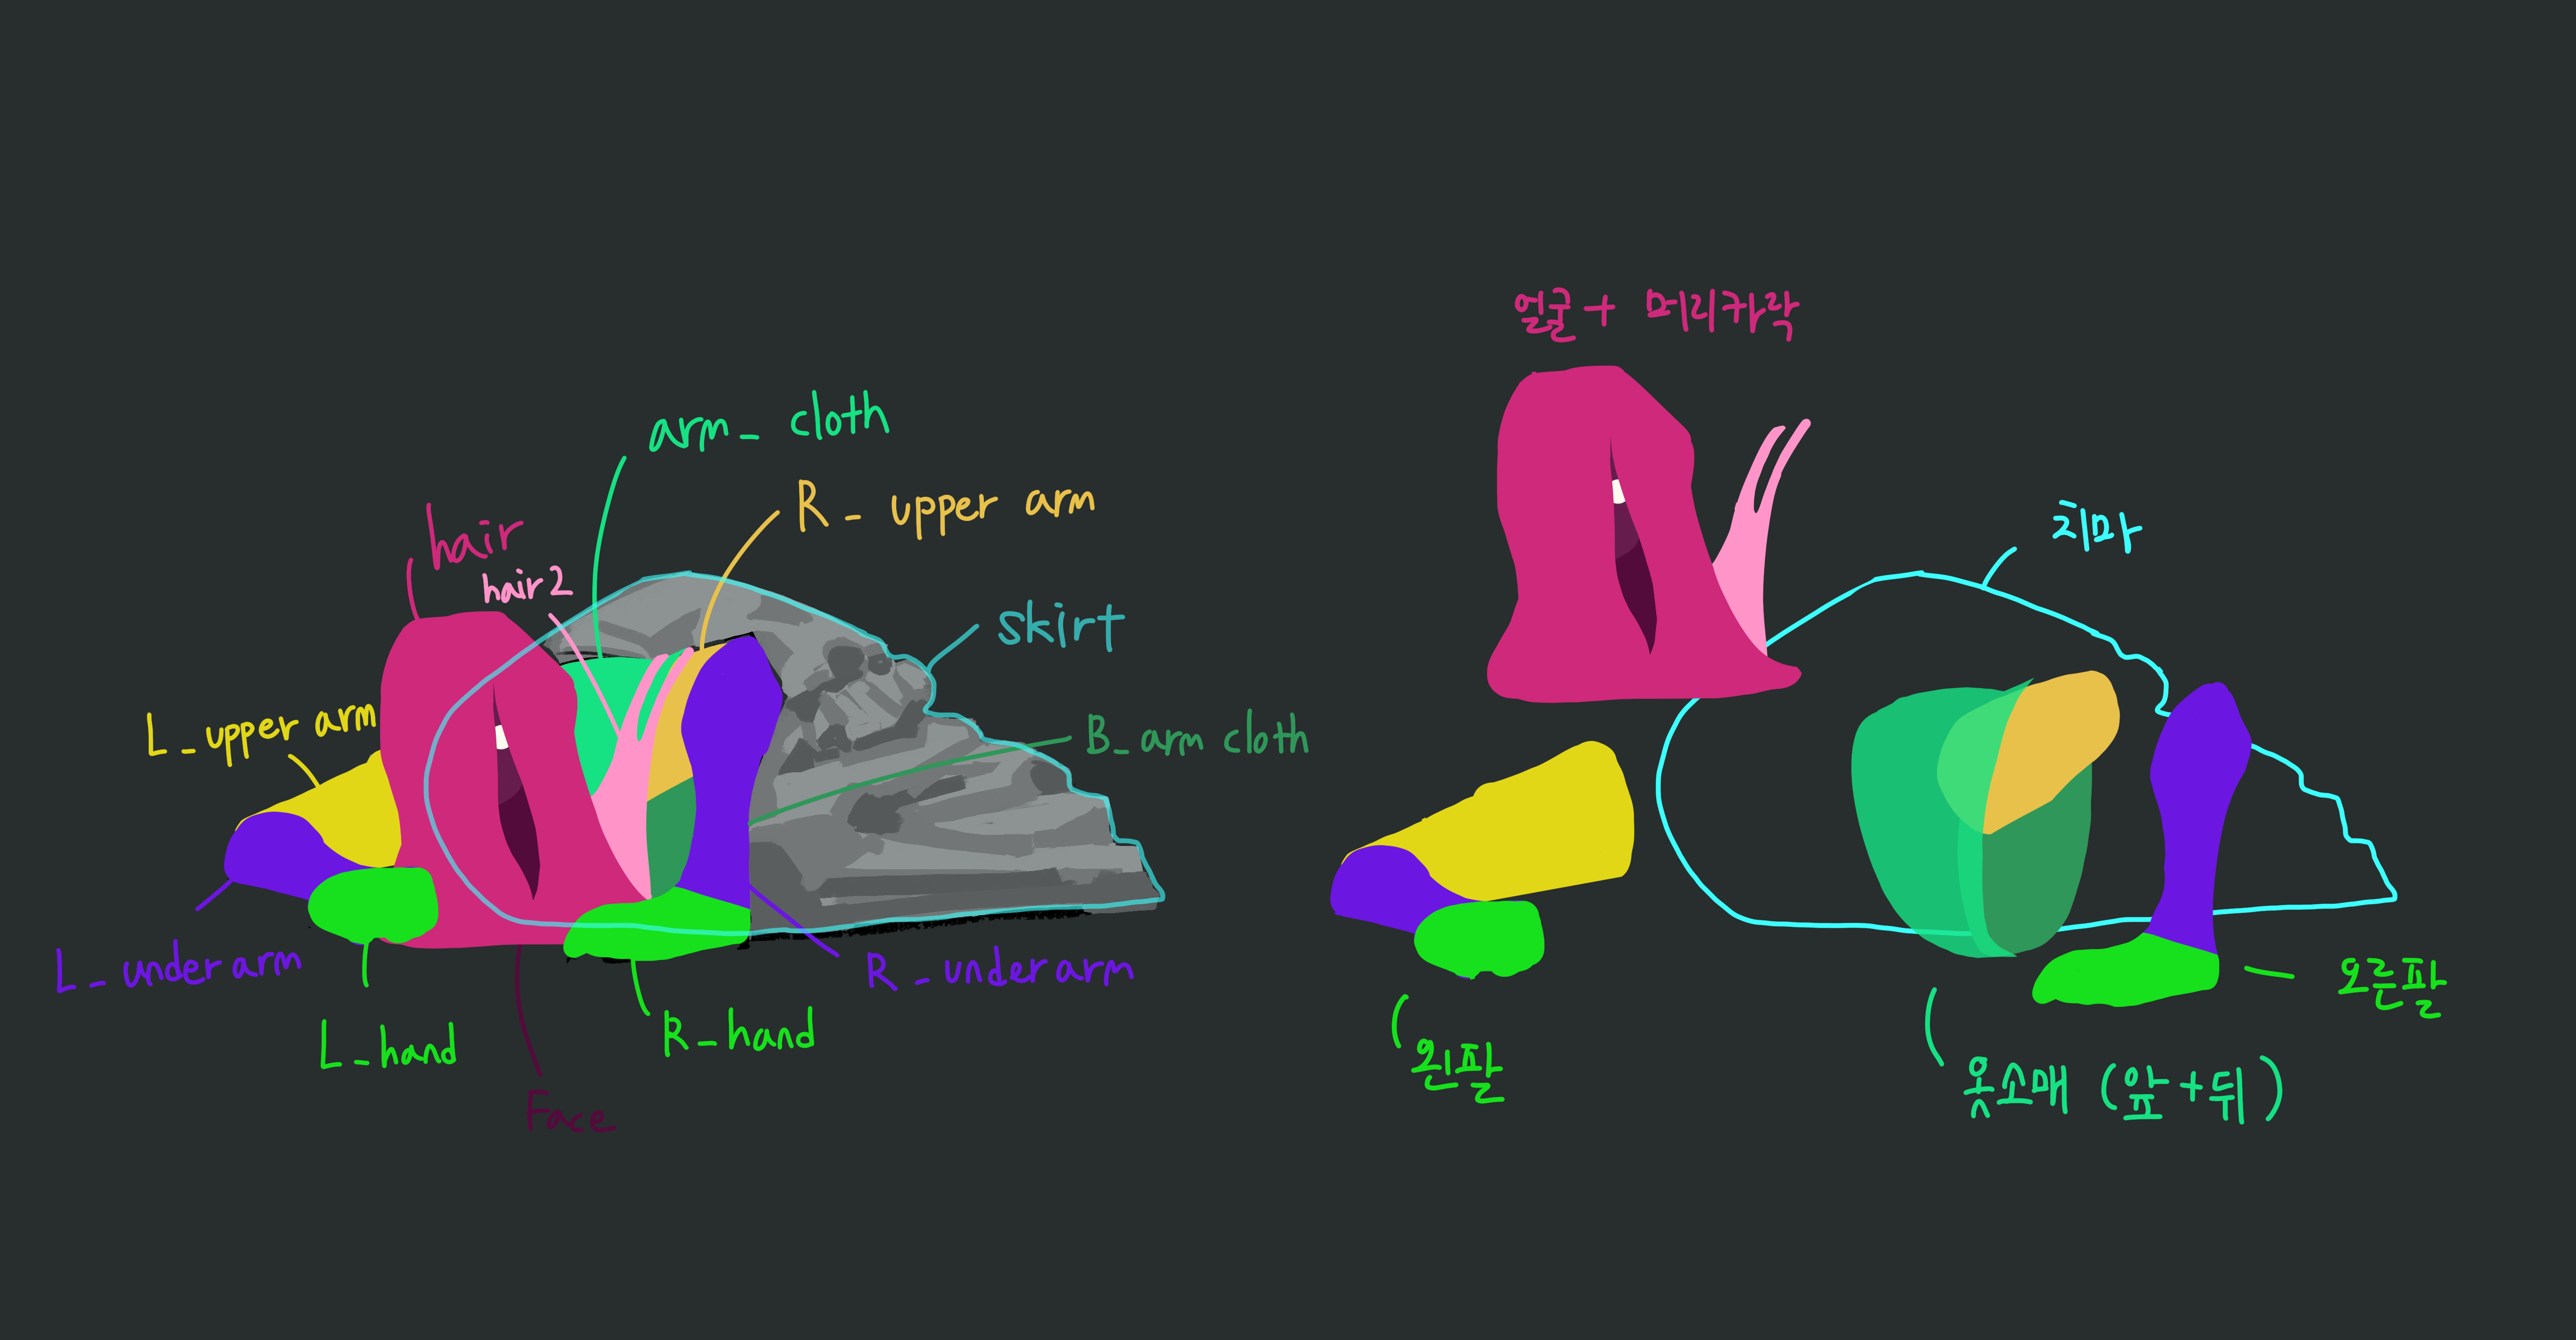 arm_ cloth
R_ upper arm
hair
hair2
skirt
L_upper arm
B_arm cloth
L_under arm
R_under arm
L_hand
R_hand
Face
얼굴+ 머리카락
치마
오른팔
왼팔
옷소매 (앞+뒤)